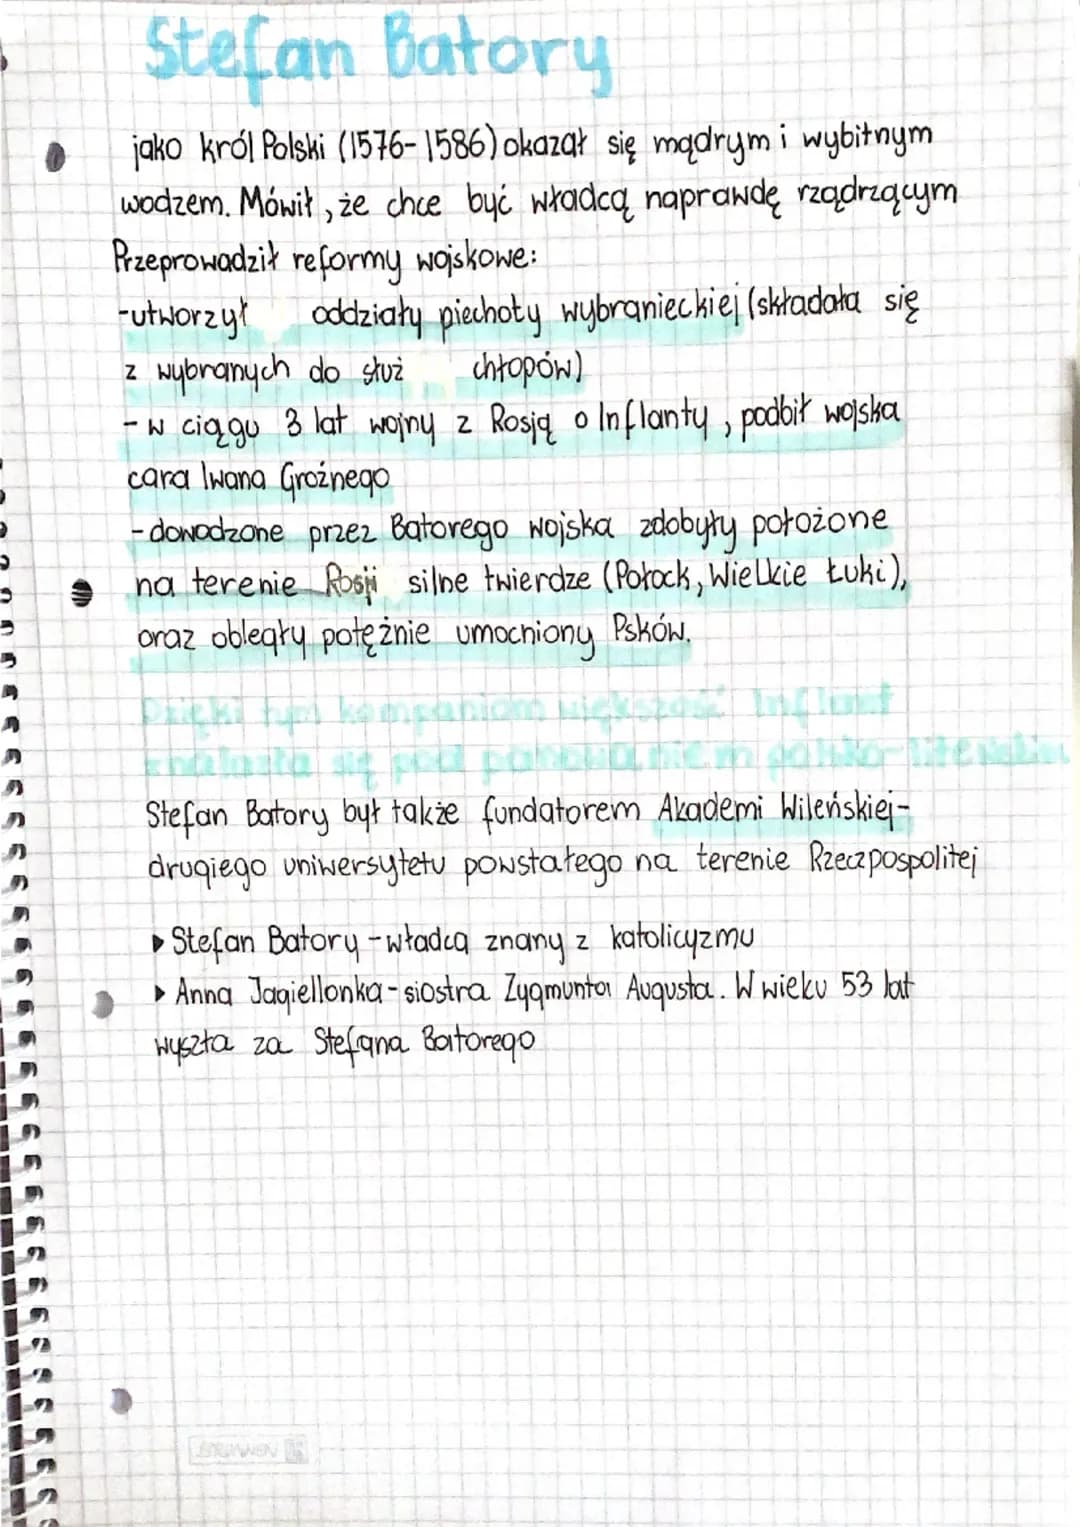 Stefan Batory
jako król Polski (1576-1586) okazał się mądrym i wybitnym
wodzem. Mówił, że chce być władcą naprawdę rządrzącym
Przeprowadził reformy wojskowe:
-utworzył oddziały piechoty wybranieckiej (składała się
z wybranych do służ chłopów)
-w ciągu 3 lat wojny z Rosją o Inflanty, podbił wojska
cara Iwana Groźnego
-dowodzone przez Batorego wojska zdobyły położone
na terenie Rosji silne twierdze (Połock, Wielkie Łuki),
oraz obległy potężnie umocniony Psków.
Dzięki tym kampaniom większość Inflant
znalazła się pod panowaniem polsko-litewskim
Stefan Batory był także fundatorem Akademi Wileńskiej-
drugiego uniwersytetu powstałego na terenie Rzeczpospolitej
▸ Stefan Batory -władca znany z katolicyzmu
▸ Anna Jagiellonka-siostra Zygmunta Augusta. W wieku 53 lat
wyszła za Stefana Batorego
BRUNNEN